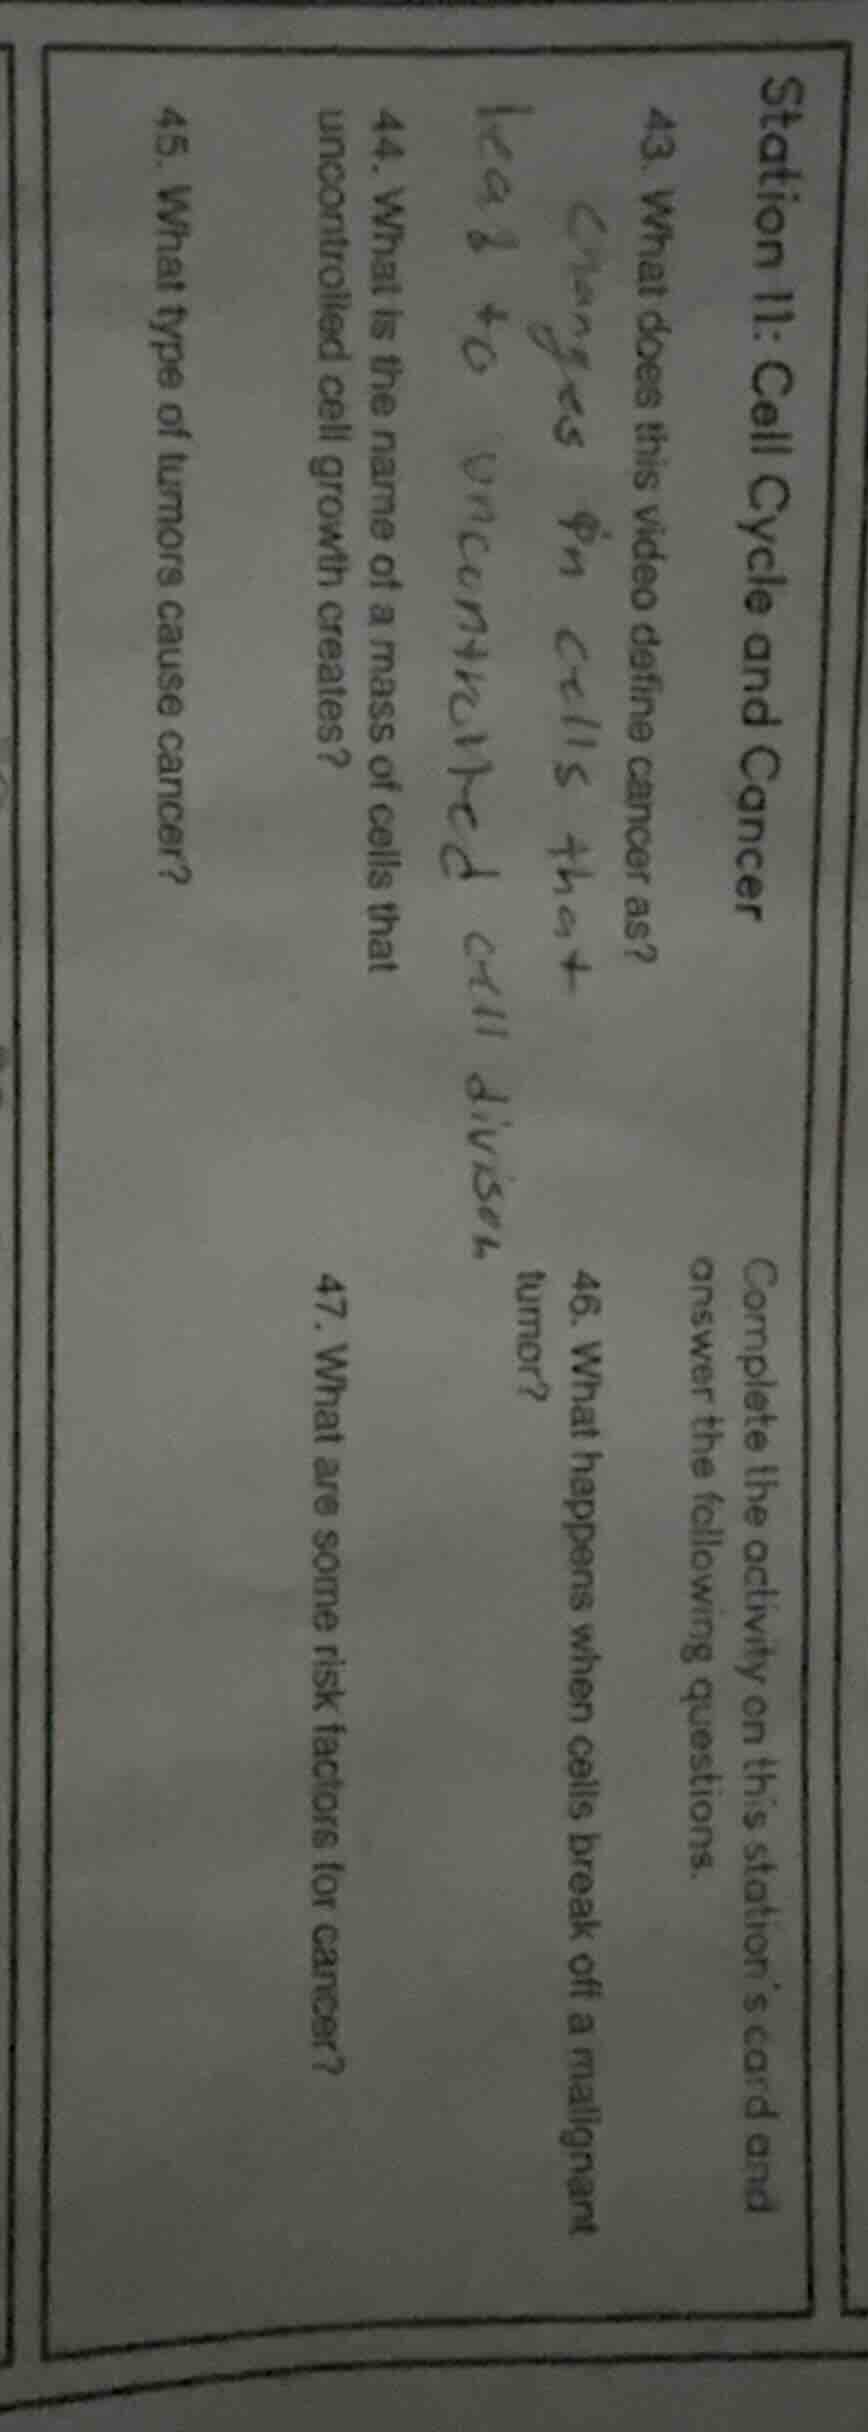 Station 11: Cell Cycle and Cancer
Complete the activity on this station's card and
answer the following questions.
43. What does this video define cancer as?
changes in cells that
lead to uncontrolled cell divison
44. What is the name of a mass of cells that
uncontrolled cell growth creates?
45. What type of tumors cause cancer?
46. What happens when cells break off a malignant
tumor?
47. What are some risk factors for cancer?